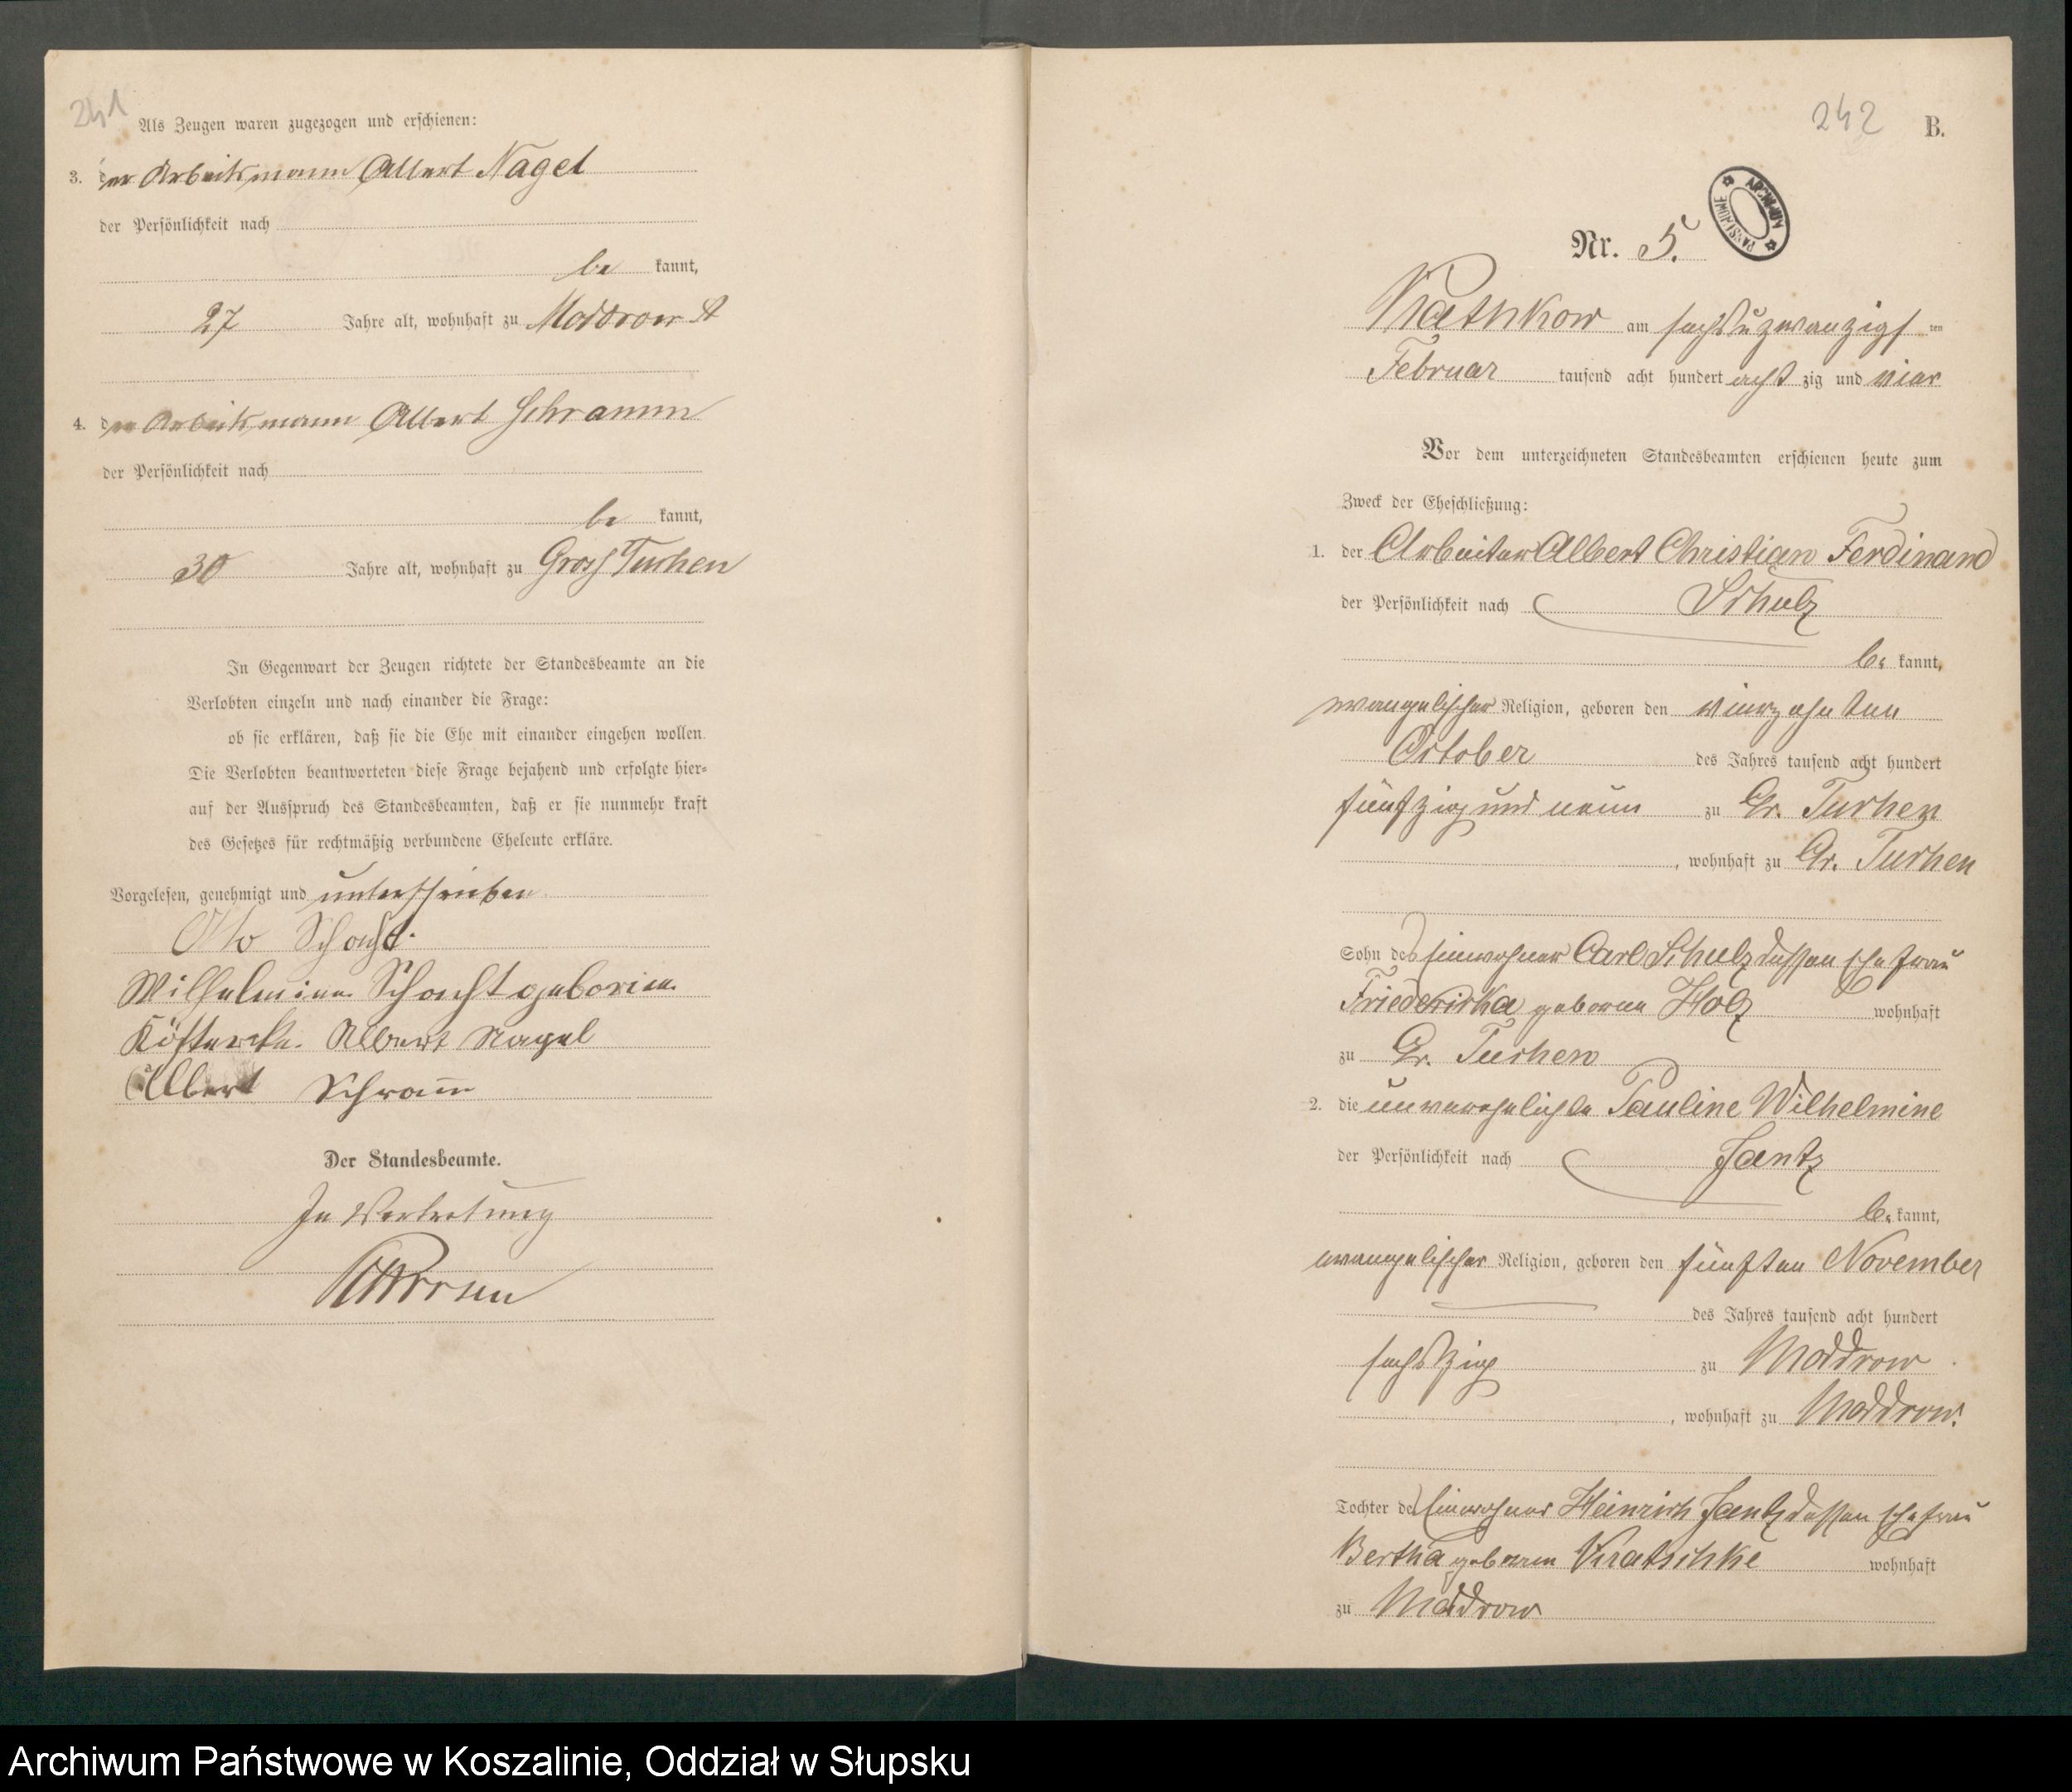 241
Als Zeugen waren zugezogen und erschienen:
3. der Arbeitsmann Albert Nagel
der Persönlichkeit nach
be kannt,
27 Jahre alt, wohnhaft zu Moddrow
4. der Arbeitsmann Albert Schramm
der Persönlichkeit nach
be kannt,
30 Jahre alt, wohnhaft zu Groß Tuchen
In Gegenwart der Zeugen richtete der Standesbeamte an die
Verlobten einzeln und nach einander die Frage:
ob sie erklären, daß sie die Ehe mit einander eingehen wollen.
Die Verlobten beantworteten diese Frage bejahend und erfolgte hier=
auf der Ausspruch des Standesbeamten, daß er sie nunmehr kraft
des Gesetzes für rechtmäßig verbundene Eheleute erkläre.
Vorgelesen, genehmigt und unterschrieben
Otto Schacht.
Wilhelmine Schacht geborene
Albert Nagel
Albert Schram̄
Der Standesbeamte.
In Vertretung
242 B.
ARCHIWUM PAŃSTWOWE
Nr. 5.
Kathkow am sechs u zwanzigs ten
Februar tausend acht hundert acht zig und vier
Vor dem unterzeichneten Standesbeamten erschienen heute zum
Zweck der Eheschließung:
1. der Arbeiter Albert Christian Ferdinand
der Persönlichkeit nach Schulz
be kannt,
evangelischer Religion, geboren den vierzehnten
October des Jahres tausend acht hundert
fünfzig und neun zu Gr. Tuchen
, wohnhaft zu Gr. Tuchen
Sohn des Einwohner Carl Schulz dessen Ehefrau
Friedericka geborene Holz wohnhaft
zu Gr. Tuchen
2. die unverehelichte Pauline Wilhelmine
der Persönlichkeit nach Jantz
be kannt,
evangelischer Religion, geboren den fünften November
des Jahres tausend acht hundert
sechszig zu Moddrow
, wohnhaft zu Moddrow.
Tochter des Einwohner Heinrich Jantz dessen Ehefrau
Bertha geboren Kratschke wohnhaft
zu Moddrow
Archiwum Państwowe w Koszalinie, Oddział w Słupsku